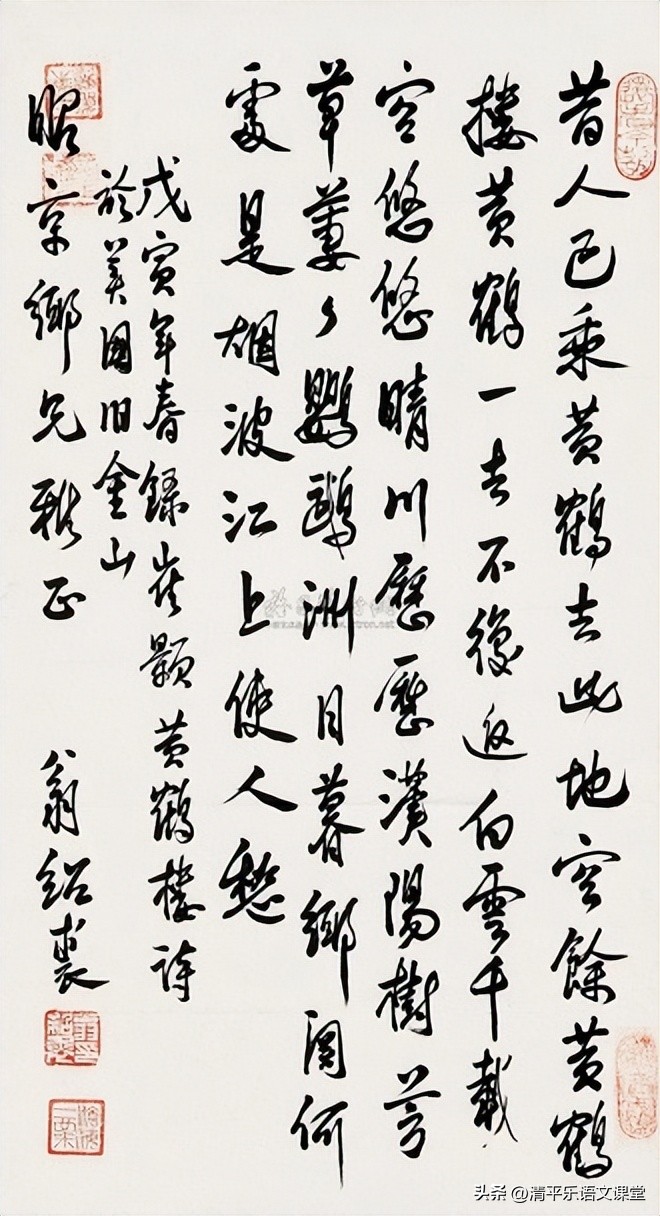 昔人已乘黄鶴去此地空餘黄鶴
楼黄鶴一去不復返白雲千載
空悠悠晴川歷歷漢陽樹芳
草萋々鸚鵡洲日暮鄉關何
處是烟波江上使人愁
戊寅年春錄崔顥黄鶴樓詩
於美國旧金山
昭京鄉兄雅正
翁紹裘
头条 @清平乐语文课堂